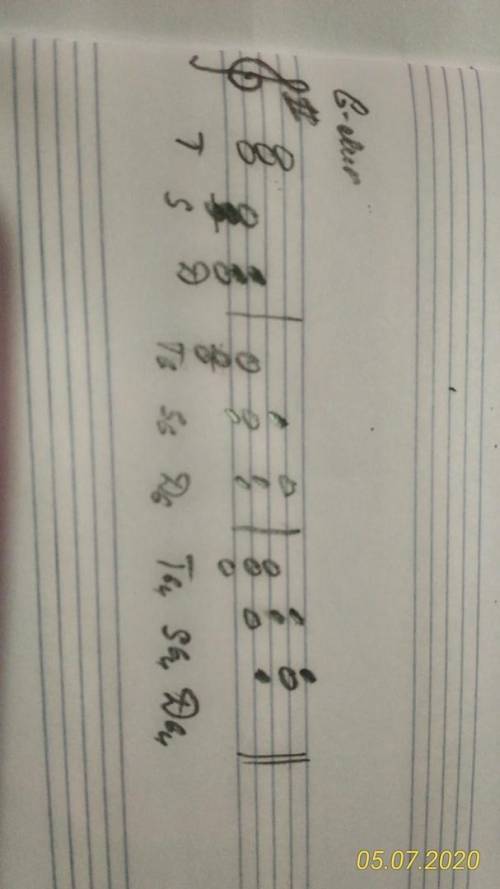 G-dur
T S D T6 S6 D6 T64 S64 D64
05.07.2020